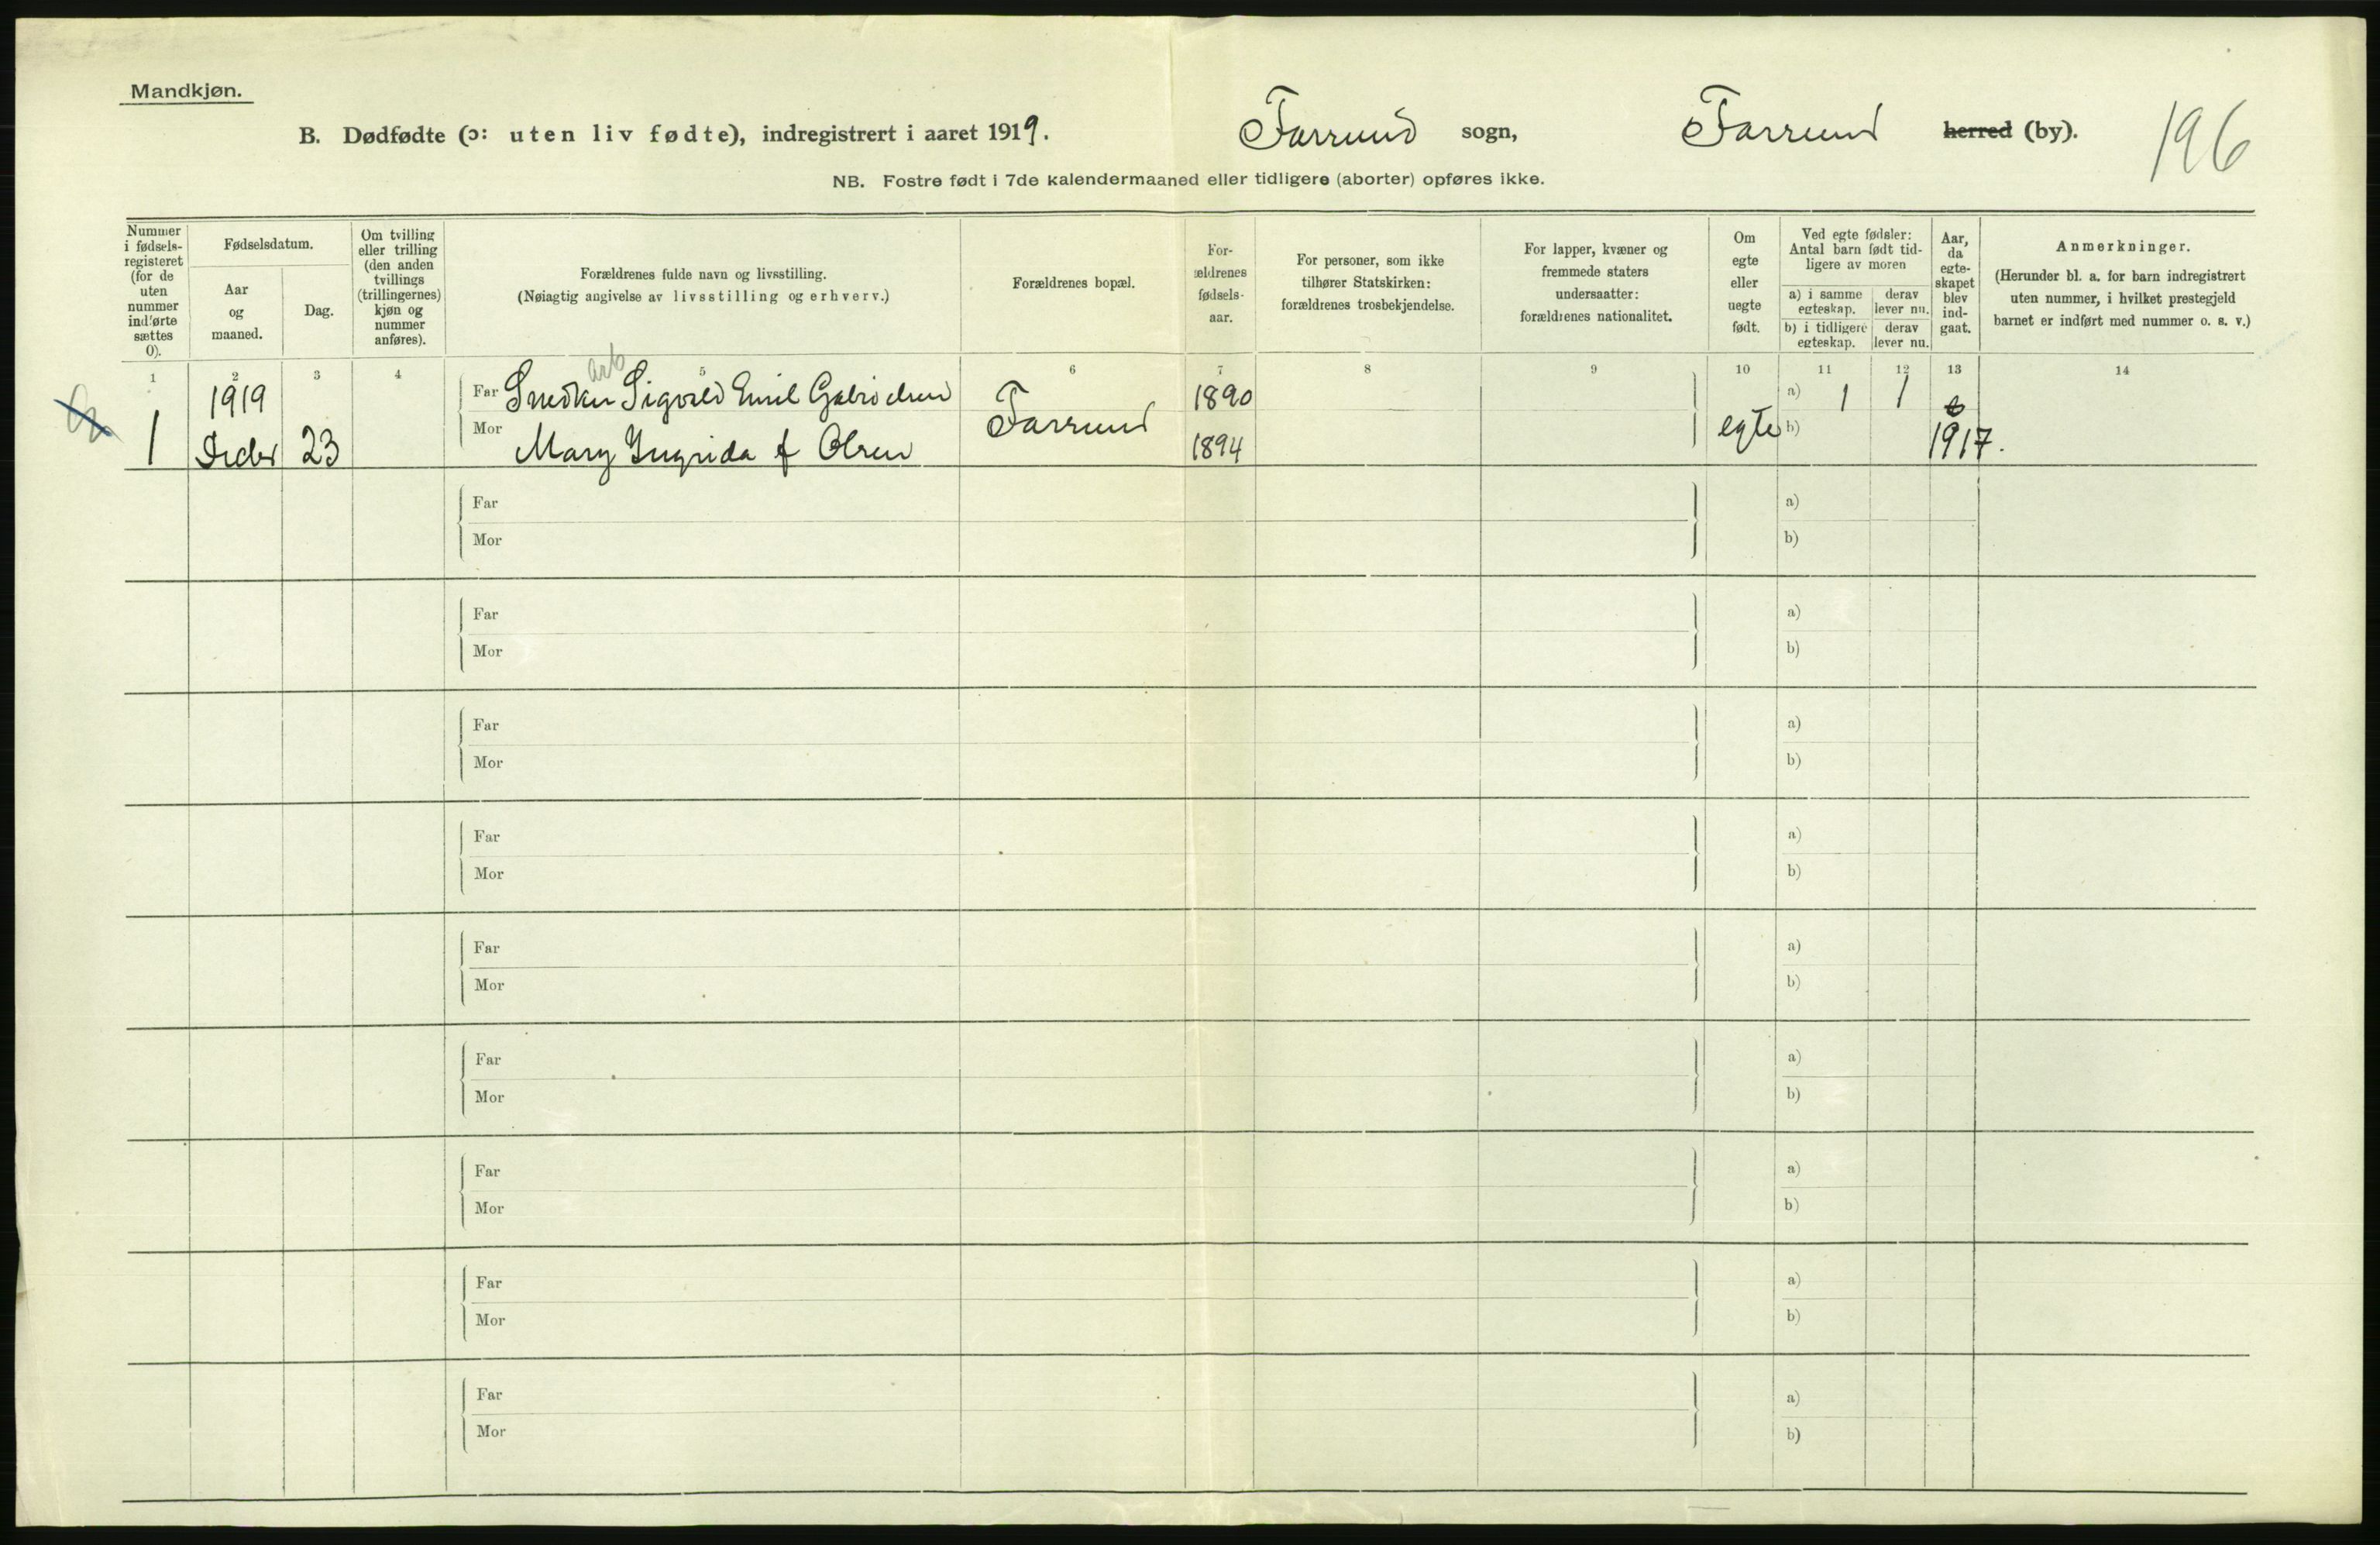 Mandkjøn.
B. Dødfødte (ɔ: uten liv fødte), indregistrert i aaret 1919. Farsund sogn, Farsund herred (by). 196
NB. Fostre født i 7de kalendermaaned eller tidligere (aborter) opføres ikke.
Nummer i fødsels-registeret (for de uten nummer indførte sættes 0).
Fødselsdatum.
Aar og maaned.
Dag.
Om tvilling eller trilling (den anden tvillings (trillingernes) kjøn og nummer anføres).
Forældrenes fulde navn og livsstilling.
(Nøiagtig angivelse av livsstilling og erhverv.)
Forældrenes bopæl.
For-ældrenes fødsels-aar.
For personer, som ikke tilhører Statskirken: forældrenes trosbekjendelse.
For lapper, kvæner og fremmede staters undersaatter: forældrenes nationalitet.
Om egte eller uegte født.
Ved egte fødsler: Antal barn født tid-ligere av moren
a) i samme egteskap.
derav lever nu.
b) i tidligere egteskap.
derav lever nu.
Aar, da egte-skapet blev ind-gaat.
Anmerkninger.
(Herunder bl. a. for barn indregistrert uten nummer, i hvilket prestegjeld barnet er indført med nummer o. s. v.)
1 2 3 4 5 6 7 8 9 10 11 12 13 14
arb
1919 Far Snedker Sigvald Emil Gabrielsen Farsund 1890 a) 1 1
1 Decbr 23 Mor Mary Ingrida f Olsen 1894 egte b) 1917.
Far a)
Mor b)
Far a)
Mor b)
Far a)
Mor b)
Far a)
Mor b)
Far a)
Mor b)
Far a)
Mor b)
Far a)
Mor b)
Far a)
Mor b)
Far a)
Mor b)